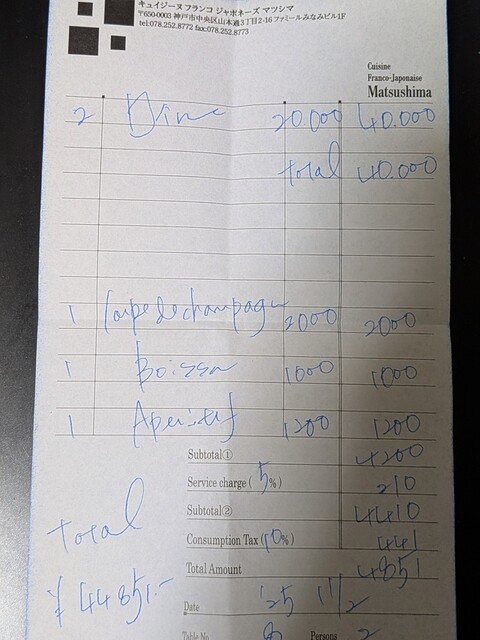 キュイジーヌ フランコ ジャポネーズ マツシマ
〒650-0003 神戸市中央区山本通3丁目2-16 ファミールみなみビル1F
tel:078.252.8772 fax:078.252.8773
Cuisine
Franco-Japonaise
Matsushima
2 Diner 20.000 40.000
total 40.000
1 Coupe de champagne 2000 2000
1 Boisson 1000 1000
1 Aperitif 1200 1200
Subtotal① 4200
Service charge ( 5%) 210
Subtotal② 4410
Consumption Tax (10%) 441
Total Amount 4851
total
¥ 44851.-
Date '25 11/2
Table No. 8 Persons 2